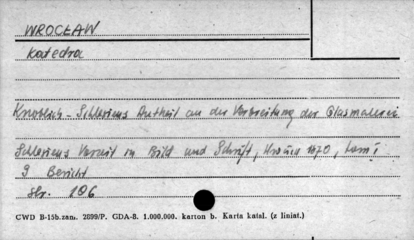 WROCŁAW
Katedra
Knoblich - Schlesiens Antheil an der Verbreitung der Glasmalerei
Schlesiens Vorzeit in Bild und Schrift, 1870, tom I
9 Bericht
str. 106
CWD B-15b.zam. 2899/P. GDA-8. 1.000.000. karton b. Karta katal. (z liniat.)